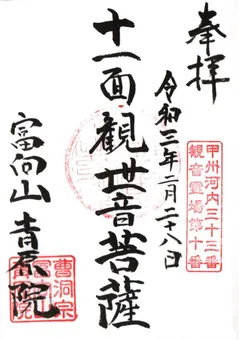 奉拝
甲州河内三十三番
観音霊場第十番
令和三年二月二十八日
十一面観世音菩薩
富向山 青原院
曹洞宗